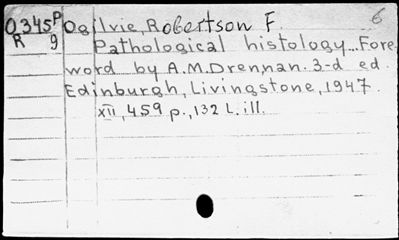 6
O345P Ogilvie, Robertson F.
R 9 Pathological histology... Fore
word by A.M. Drennan. 3-d ed.
Edinburgh, Livingstone, 1947.
XII, 459 p., 132 L. ill.